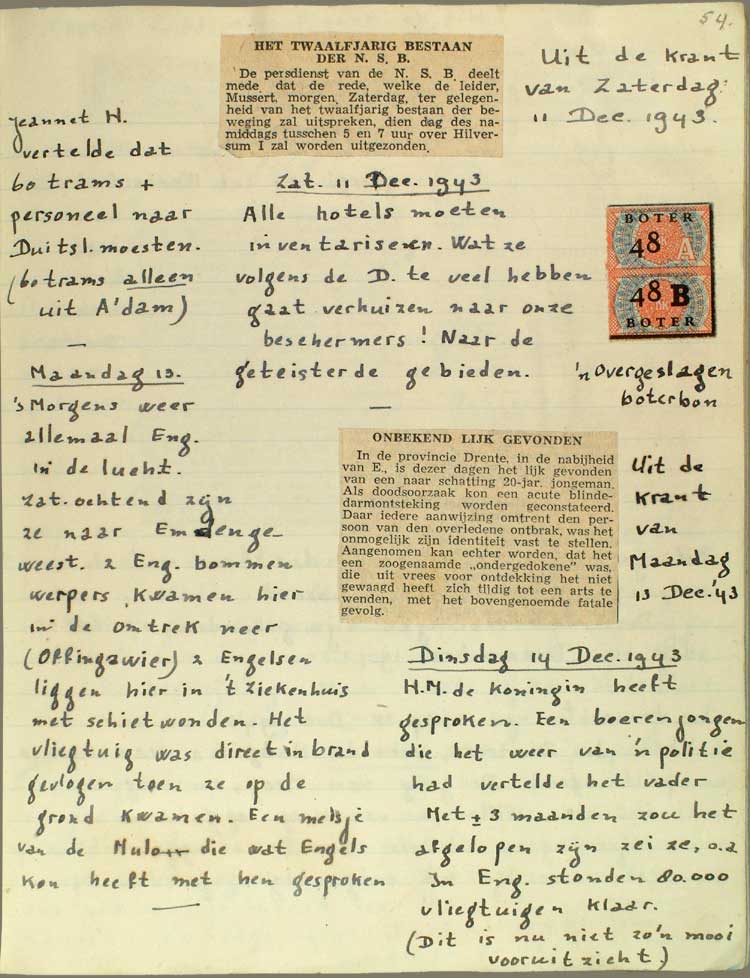 54.
HET TWAALFJARIG BESTAAN
DER N. S. B.
De persdienst van de N. S. B. deelt
mede dat de rede, welke de leider,
Mussert, morgen, Zaterdag, ter gelegen-
heid van het twaalfjarig bestaan der be-
weging zal uitspreken, dien dag des na-
middags tusschen 5 en 7 uur over Hilver-
sum I zal worden uitgezonden.
Uit de krant
van Zaterdag
11 Dec. 1943.
Jeannet H.
vertelde dat
60 trams +
personeel naar
Duitsl. moesten.
(60 trams alleen
uit A'dam)
Maandag 13.
's Morgens weer
allemaal Eng.
in de lucht.
Zat. ochtend zijn
ze naar Emden ge-
weest. 2 Eng. bommen
werpers kwamen hier
in de omtrek neer
(Offingawier) 2 Engelsen
liggen hier in 't ziekenhuis
met schietwonden. Het
vliegtuig was direct in brand
gevlogen toen ze op de
grond kwamen. Een meisje
van de Mulo die wat Engels
kon heeft met hen gesproken
Zat. 11 Dec. 1943
Alle hotels moeten
inventariseren. Wat ze
volgens de D. te veel hebben
gaat verhuizen naar onze
beschermers! Naar de
geteisterde gebieden.
BOTER
48 A
48 B
BOTER
'n Overgeslagen
boterbon
ONBEKEND LIJK GEVONDEN
In de provincie Drente, in de nabijheid
van E., is dezer dagen het lijk gevonden
van een naar schatting 20-jar. jongeman.
Als doodsoorzaak kon een acute blinde-
darmontsteking worden geconstateerd.
Daar iedere aanwijzing omtrent den per-
soon van den overledene ontbrak, was het
onmogelijk zijn identiteit vast te stellen.
Aangenomen kan echter worden, dat het
een zoogenaamde „ondergedokene" was,
die uit vrees voor ontdekking het niet
gewaagd heeft zich tijdig tot een arts te
wenden, met het bovengenoemde fatale
gevolg.
Uit de
krant
van
Maandag
13 Dec. '43
Dinsdag 14 Dec. 1943
H.M. de Koningin heeft
gesproken. Een boerenjongen
die het weer van 'n politie
had vertelde het vader
Met ± 3 maanden zou het
afgelopen zijn zei ze, o.a.
In Eng. stonden 80.000
vliegtuigen klaar.
(Dit is nu niet zo'n mooi
vooruitzicht.)